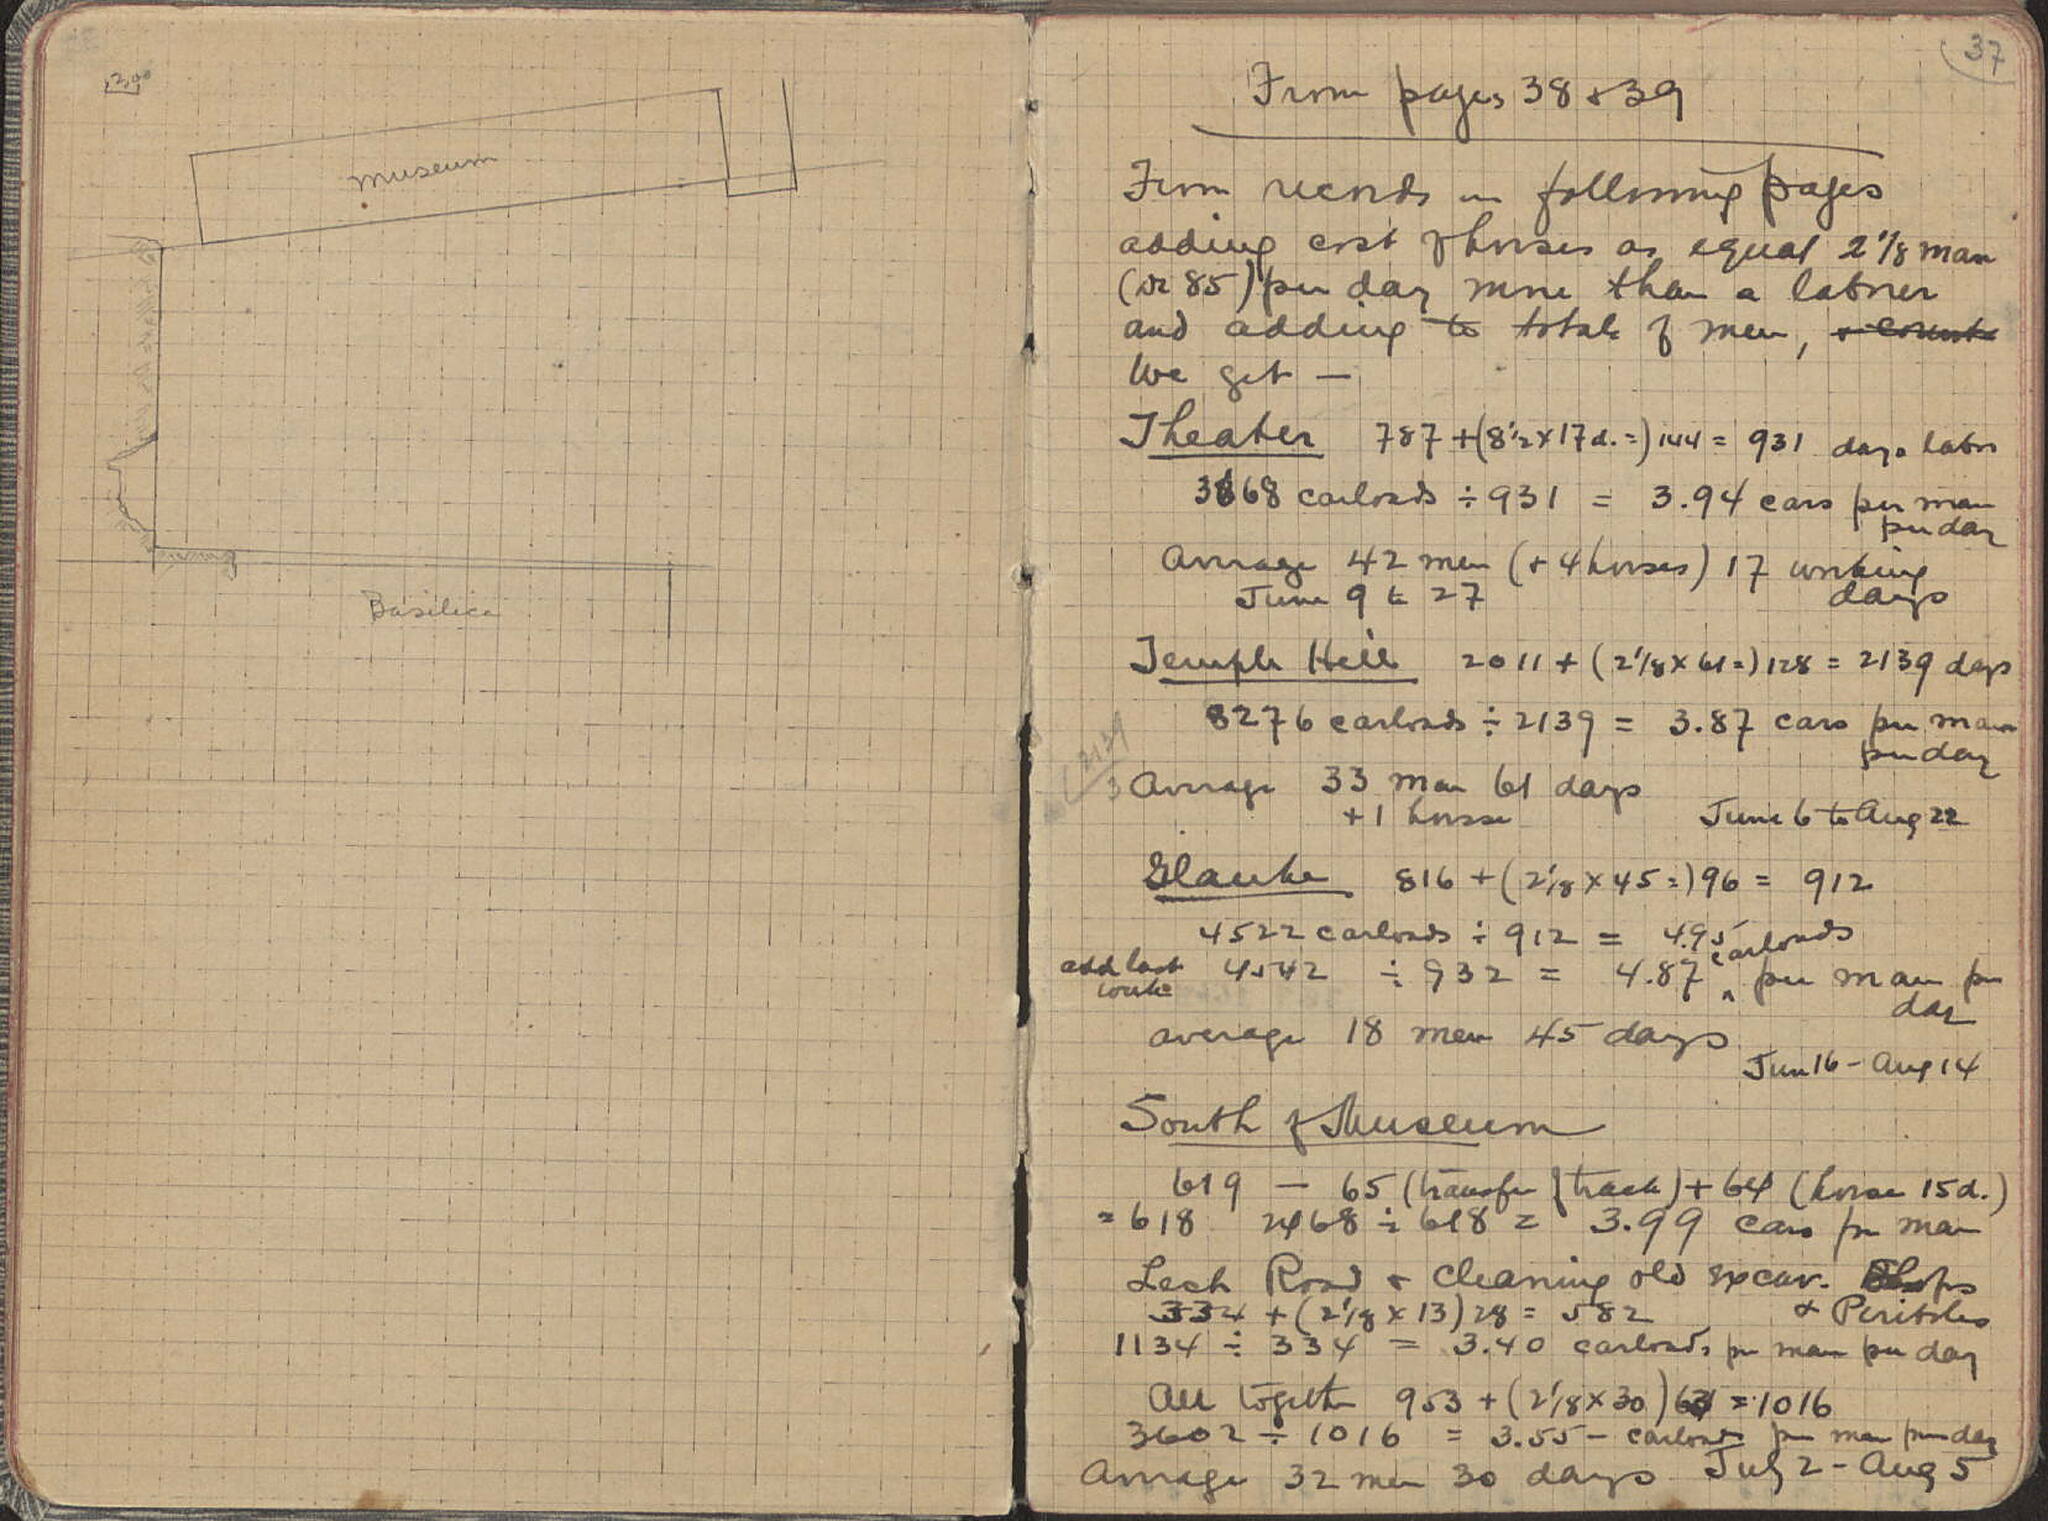 2,00
Museum
Basilica
37
From pages 38 & 39
From records in following pages
adding cost of horses as equal 2 1/8 man
(dr 85) per day more than a laborer
and adding to total of men, & count
we get —
Theater 787 + (8 1/2 x 17 d. =) 144 = 931 days labor
3668 carloads ÷ 931 = 3.94 cars per man
per day
Average 42 men (+ 4 horses) 17 working
June 9 to 27 days
Temple Hill 2011 + (2 1/8 x 61 =) 128 = 2139 days
8276 carloads ÷ 2139 = 3.87 cars per man
per day
2139
3
Average 33 men 61 days
+ 1 horse June 6 to Aug 22
Glauke 816 + (2 1/8 x 45 =) 96 = 912
4522 carloads ÷ 912 = 4.95
add last 4542 ÷ 932 = 4.87 carloads per man per
day
average 18 men 45 days
Jun 16 - Aug 14
South of Museum
619 — 65 (transfer of track) + 64 (horse 15 d.)
= 618 2468 ÷ 618 = 3.99 cars per man
Lech Road & cleaning old excav.
& Peribolos
334 + (2 1/8 x 13) 28 = 582
1134 ÷ 334 = 3.40 carloads per man per day
All together 953 + (2 1/8 x 30) 63 = 1016
3602 ÷ 1016 = 3.55 - carloads per man per day
Average 32 men 30 days July 2 - Aug 5